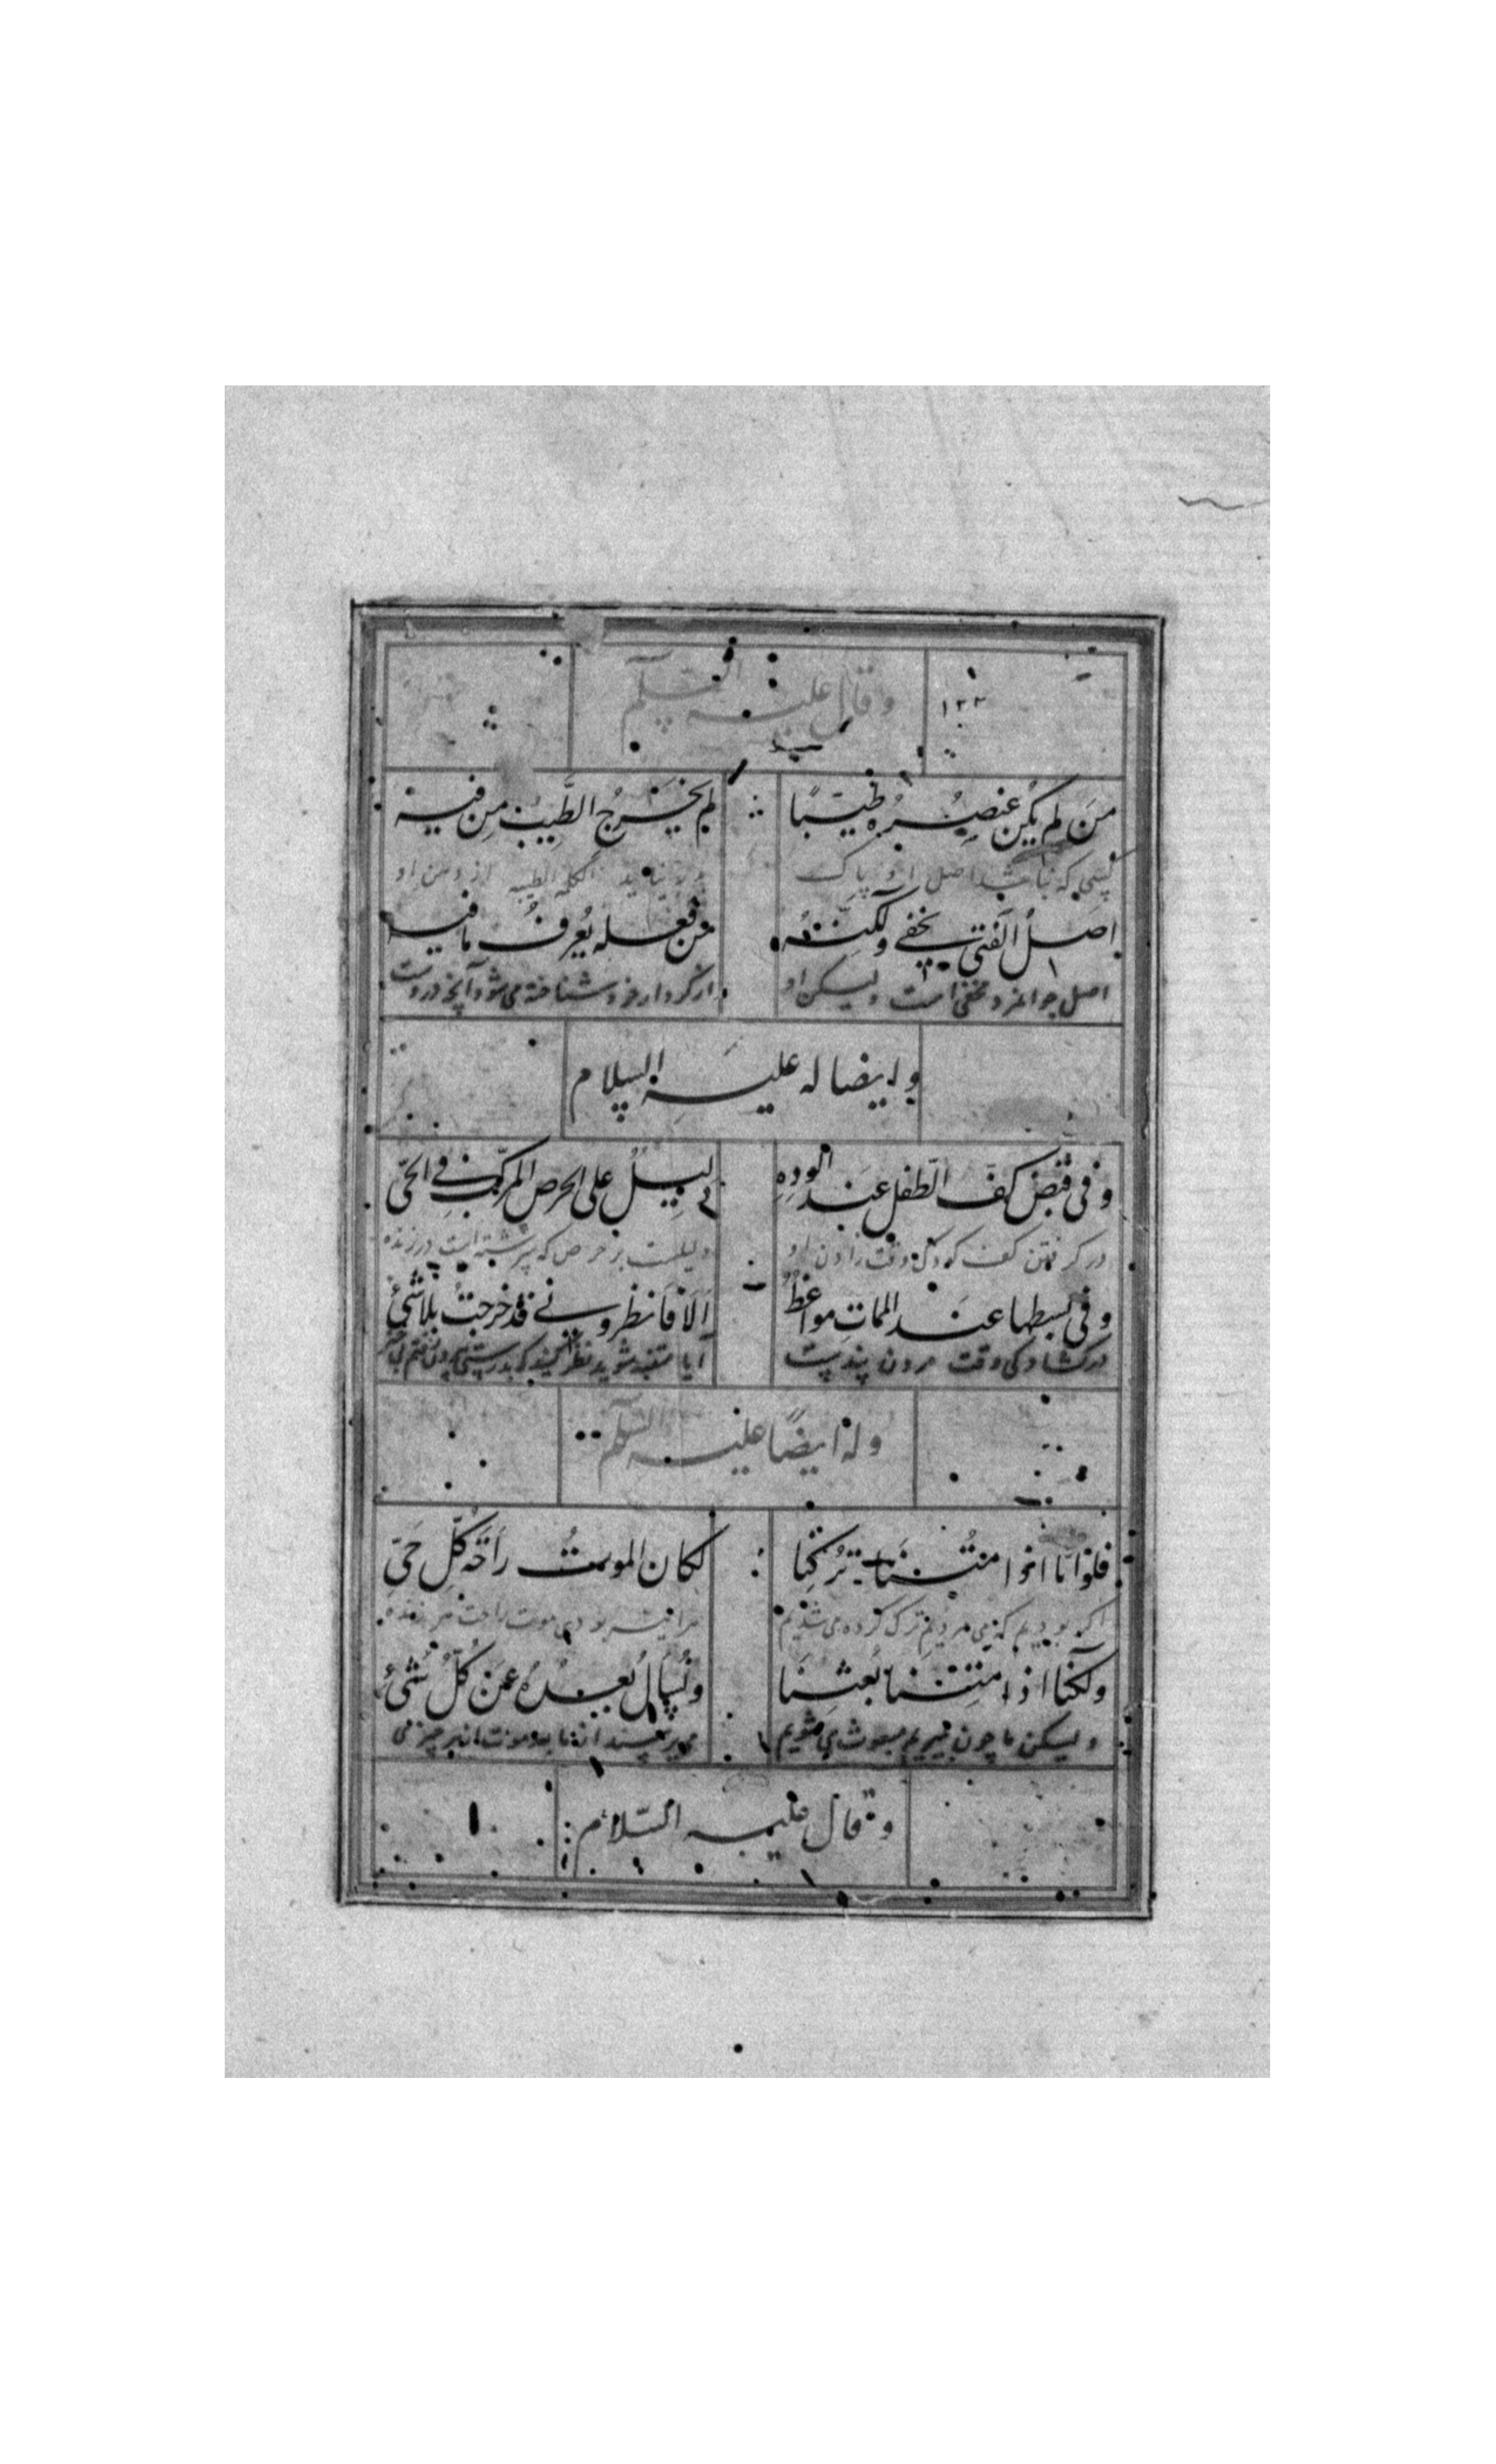 وقال علیه السلم
۱۲۳
مَن لم یکُن عنصُرُه طیّبًا لم یخرُج الطَّیبُ مِن فیه
کسی که نباشد اصل او پاک نیاید الکلمه الطیبه از دهن او
اصلُ الفتی یخفی ولکنّه من فعله یُعرفُ مافیه
اصل جوانمرد مخفی است ولیکن او از کردار خود شناخته می شود آنچه دروست
وایضا له علیه السلام
وفی قبض کفّ الطّفل عند الودِهِ دلیلُ علی الحرص المرکّب فی الحیّ
در گرفتن کف کودک وقت زادن او دلیلست بر حرص که سرشته است در زنده
وفی بسطها عند المماتِ مواعظُ اَلَا فَانظرونی قد خرجتُ بلاشیٔ
در کشادگی وقت مردن پندیست آیا متنبه شوید نظر کنید که بدرستی بیرون رفتم
وله ایضًا علیه السلم
فلوانّا اذا مُتنَا تُرکنا لکان الموتُ رَاحَةَ کُلِّ حَیّ
اگر بودیم که می مردیم ترک کرده می شدیم هرآینه بودی موت راحت هر زنده
ولکنّا اذا مِتنَا بُعثنَا ونُسالُ بُعیدَهُ عَن کُلّ شَیٔ
ولیکن ما چون بمیریم مبعوث می شویم می پرسند از ما بعد موت از هر چیز می
وقال علیه السّلام